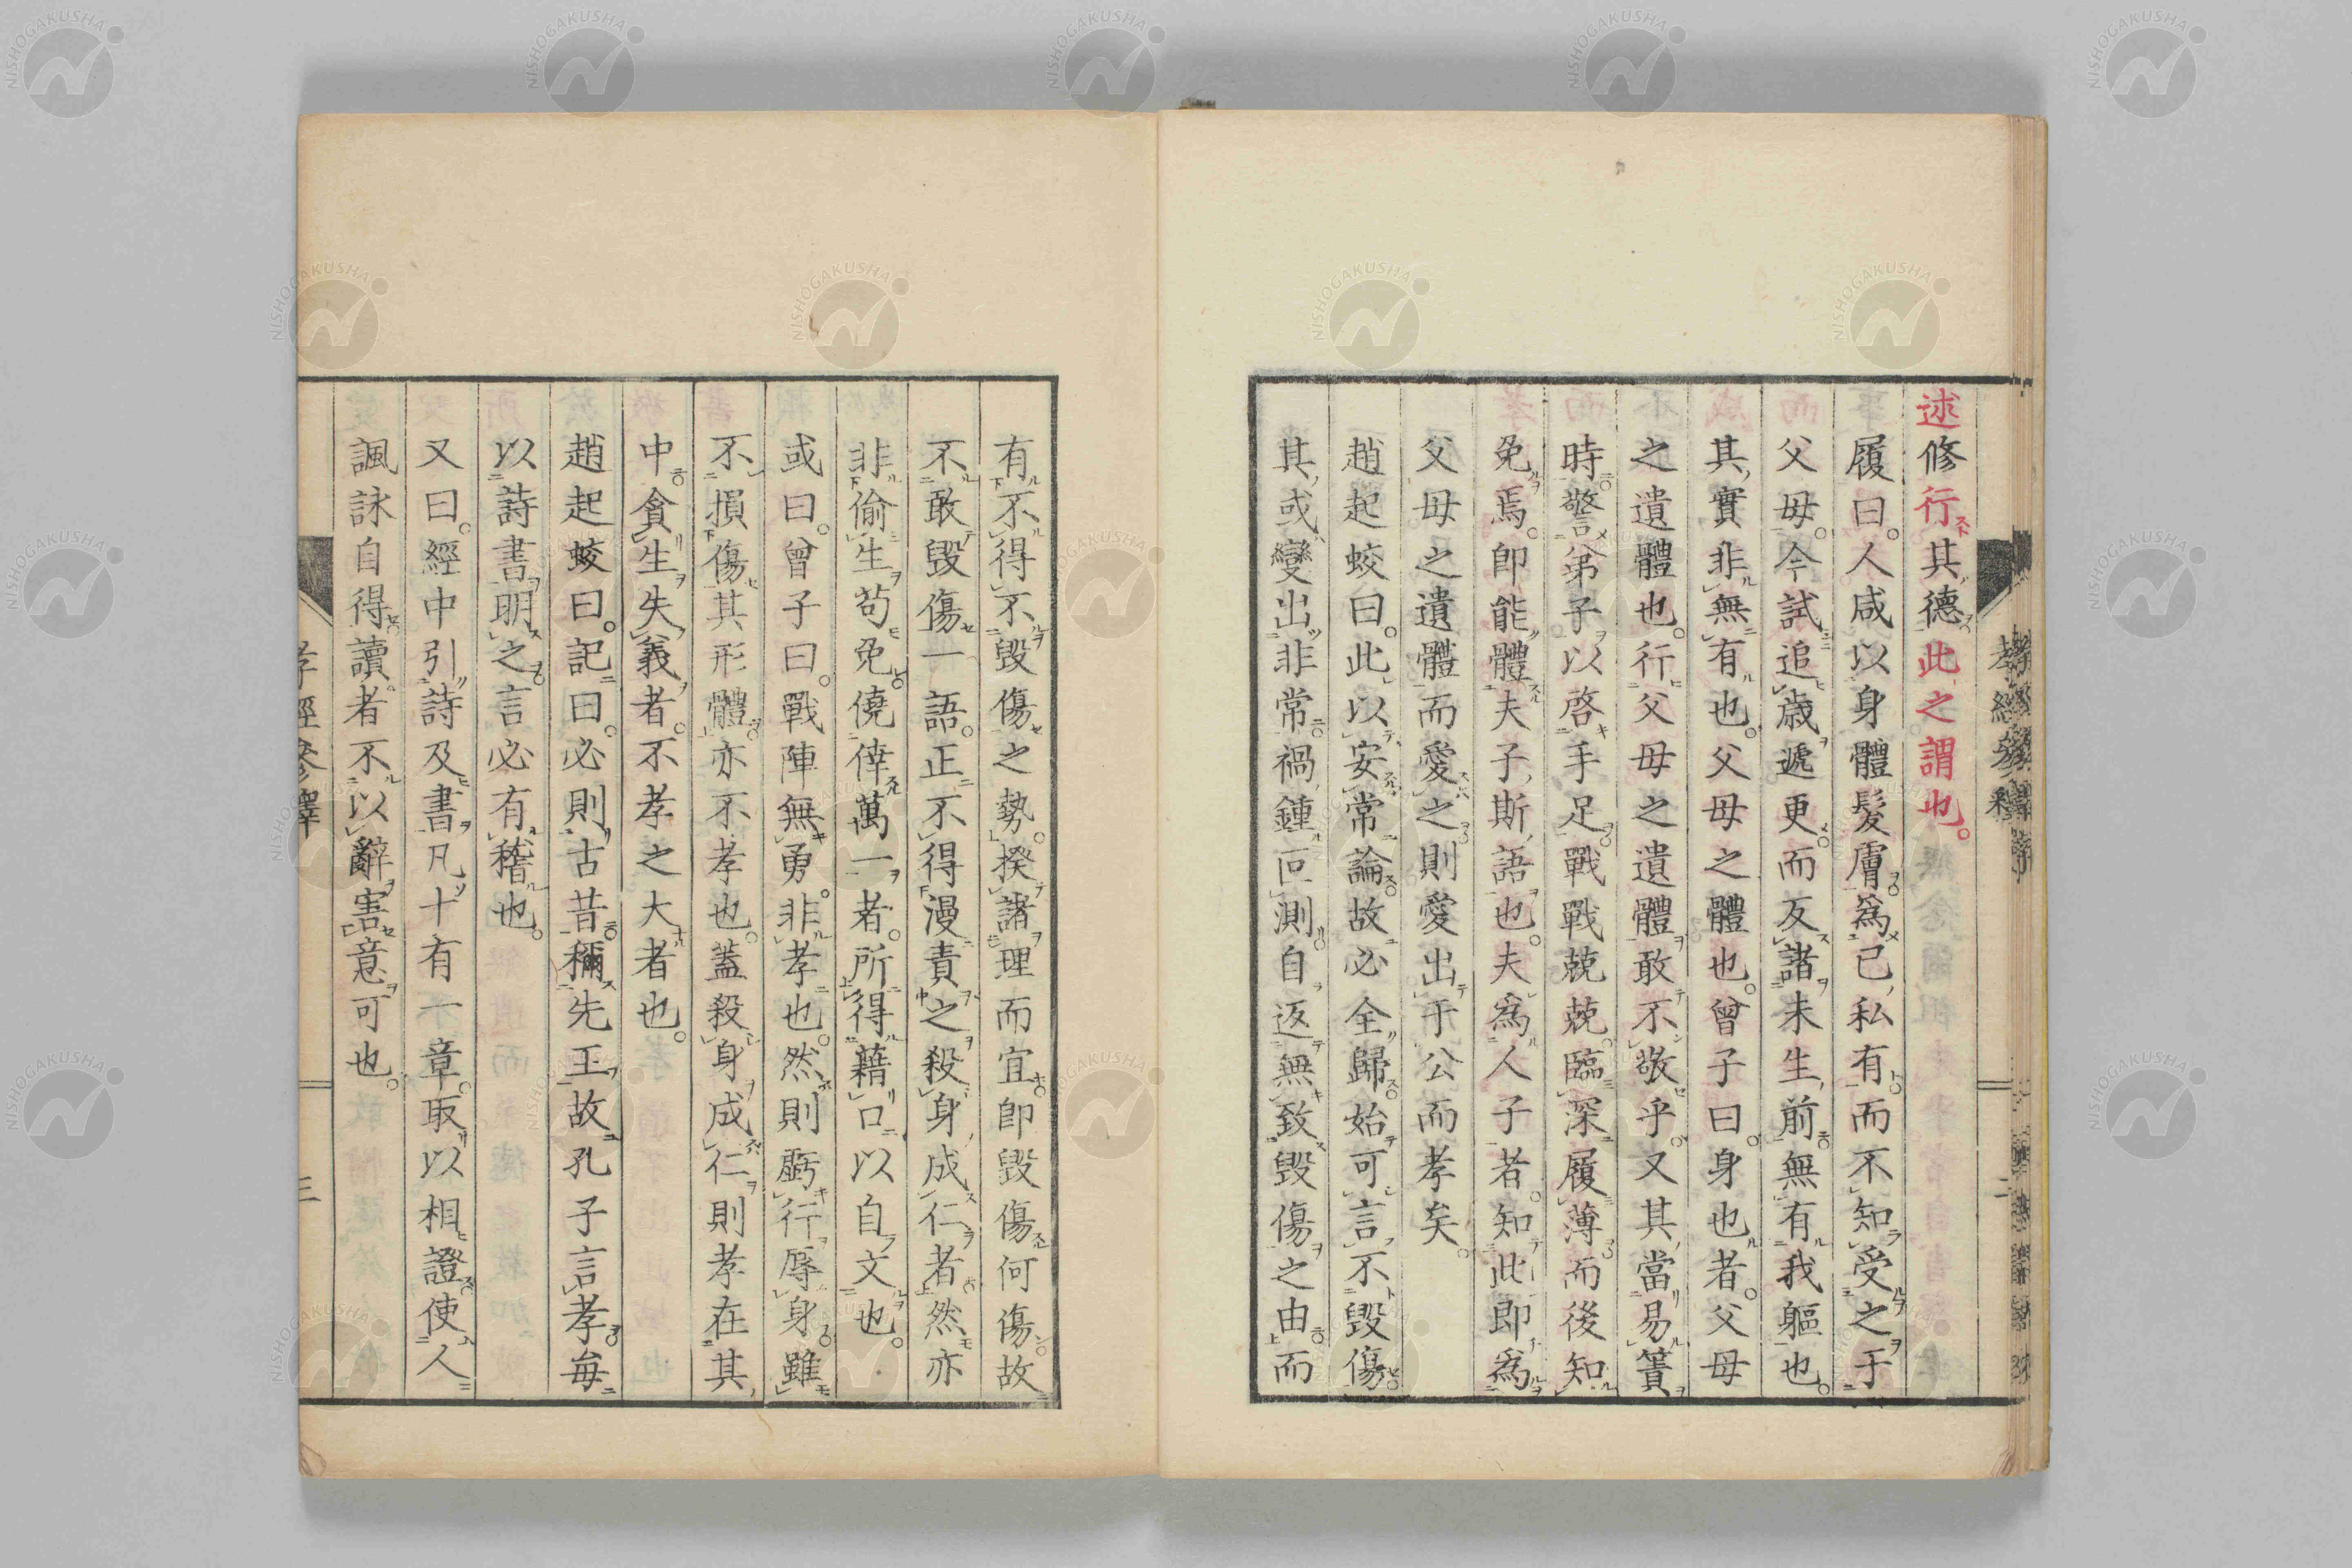 述修行其德此之謂也。
履曰。人咸以身體髮膚。爲已私有。而不知受之于
父母。今試追歲遞更。而反諸未生前。無有我軀也。
其實非無有也。父母之體也。曾子曰。身也者。父母
之遺體也。行父母之遺體。敢不敬乎。又其當易簀
時。警弟子。以啓手足。戰戰兢兢。臨深履薄。而後知
免焉。卽能體夫子斯語也。夫爲人子者。知此卽爲
父母之遺體。而愛之。則愛出于公而孝矣。
趙起蛟曰。此以安常論。故必全歸。始可言不毀傷。
其或變出非常。禍鍾叵測。自返無致毀傷之由。而
有不得不毀傷之勢。揆諸理而宜。卽毀傷何傷。故
不敢毀傷一語。正不得漫責之殺身成仁者。然亦
非偷生苟免。僥倖萬一者。所得藉口以自文也。
或曰。曾子曰。戰陣無勇。非孝也。然則虧行辱身。雖
不損傷其形體。亦不孝也。蓋殺身成仁。則孝在其
中。貪生失義者。不孝之大者也。
趙起蛟曰。記曰。必則古昔。稱先王。故孔子言孝。每
以詩書明之。言必有稽也。
又曰。經中引詩及書。凡十有一章。取以相證。使人
諷詠自得。讀者不以辭害意可也。
孝經參釋
二
孝經參釋
三
NISHOGAKUSHA